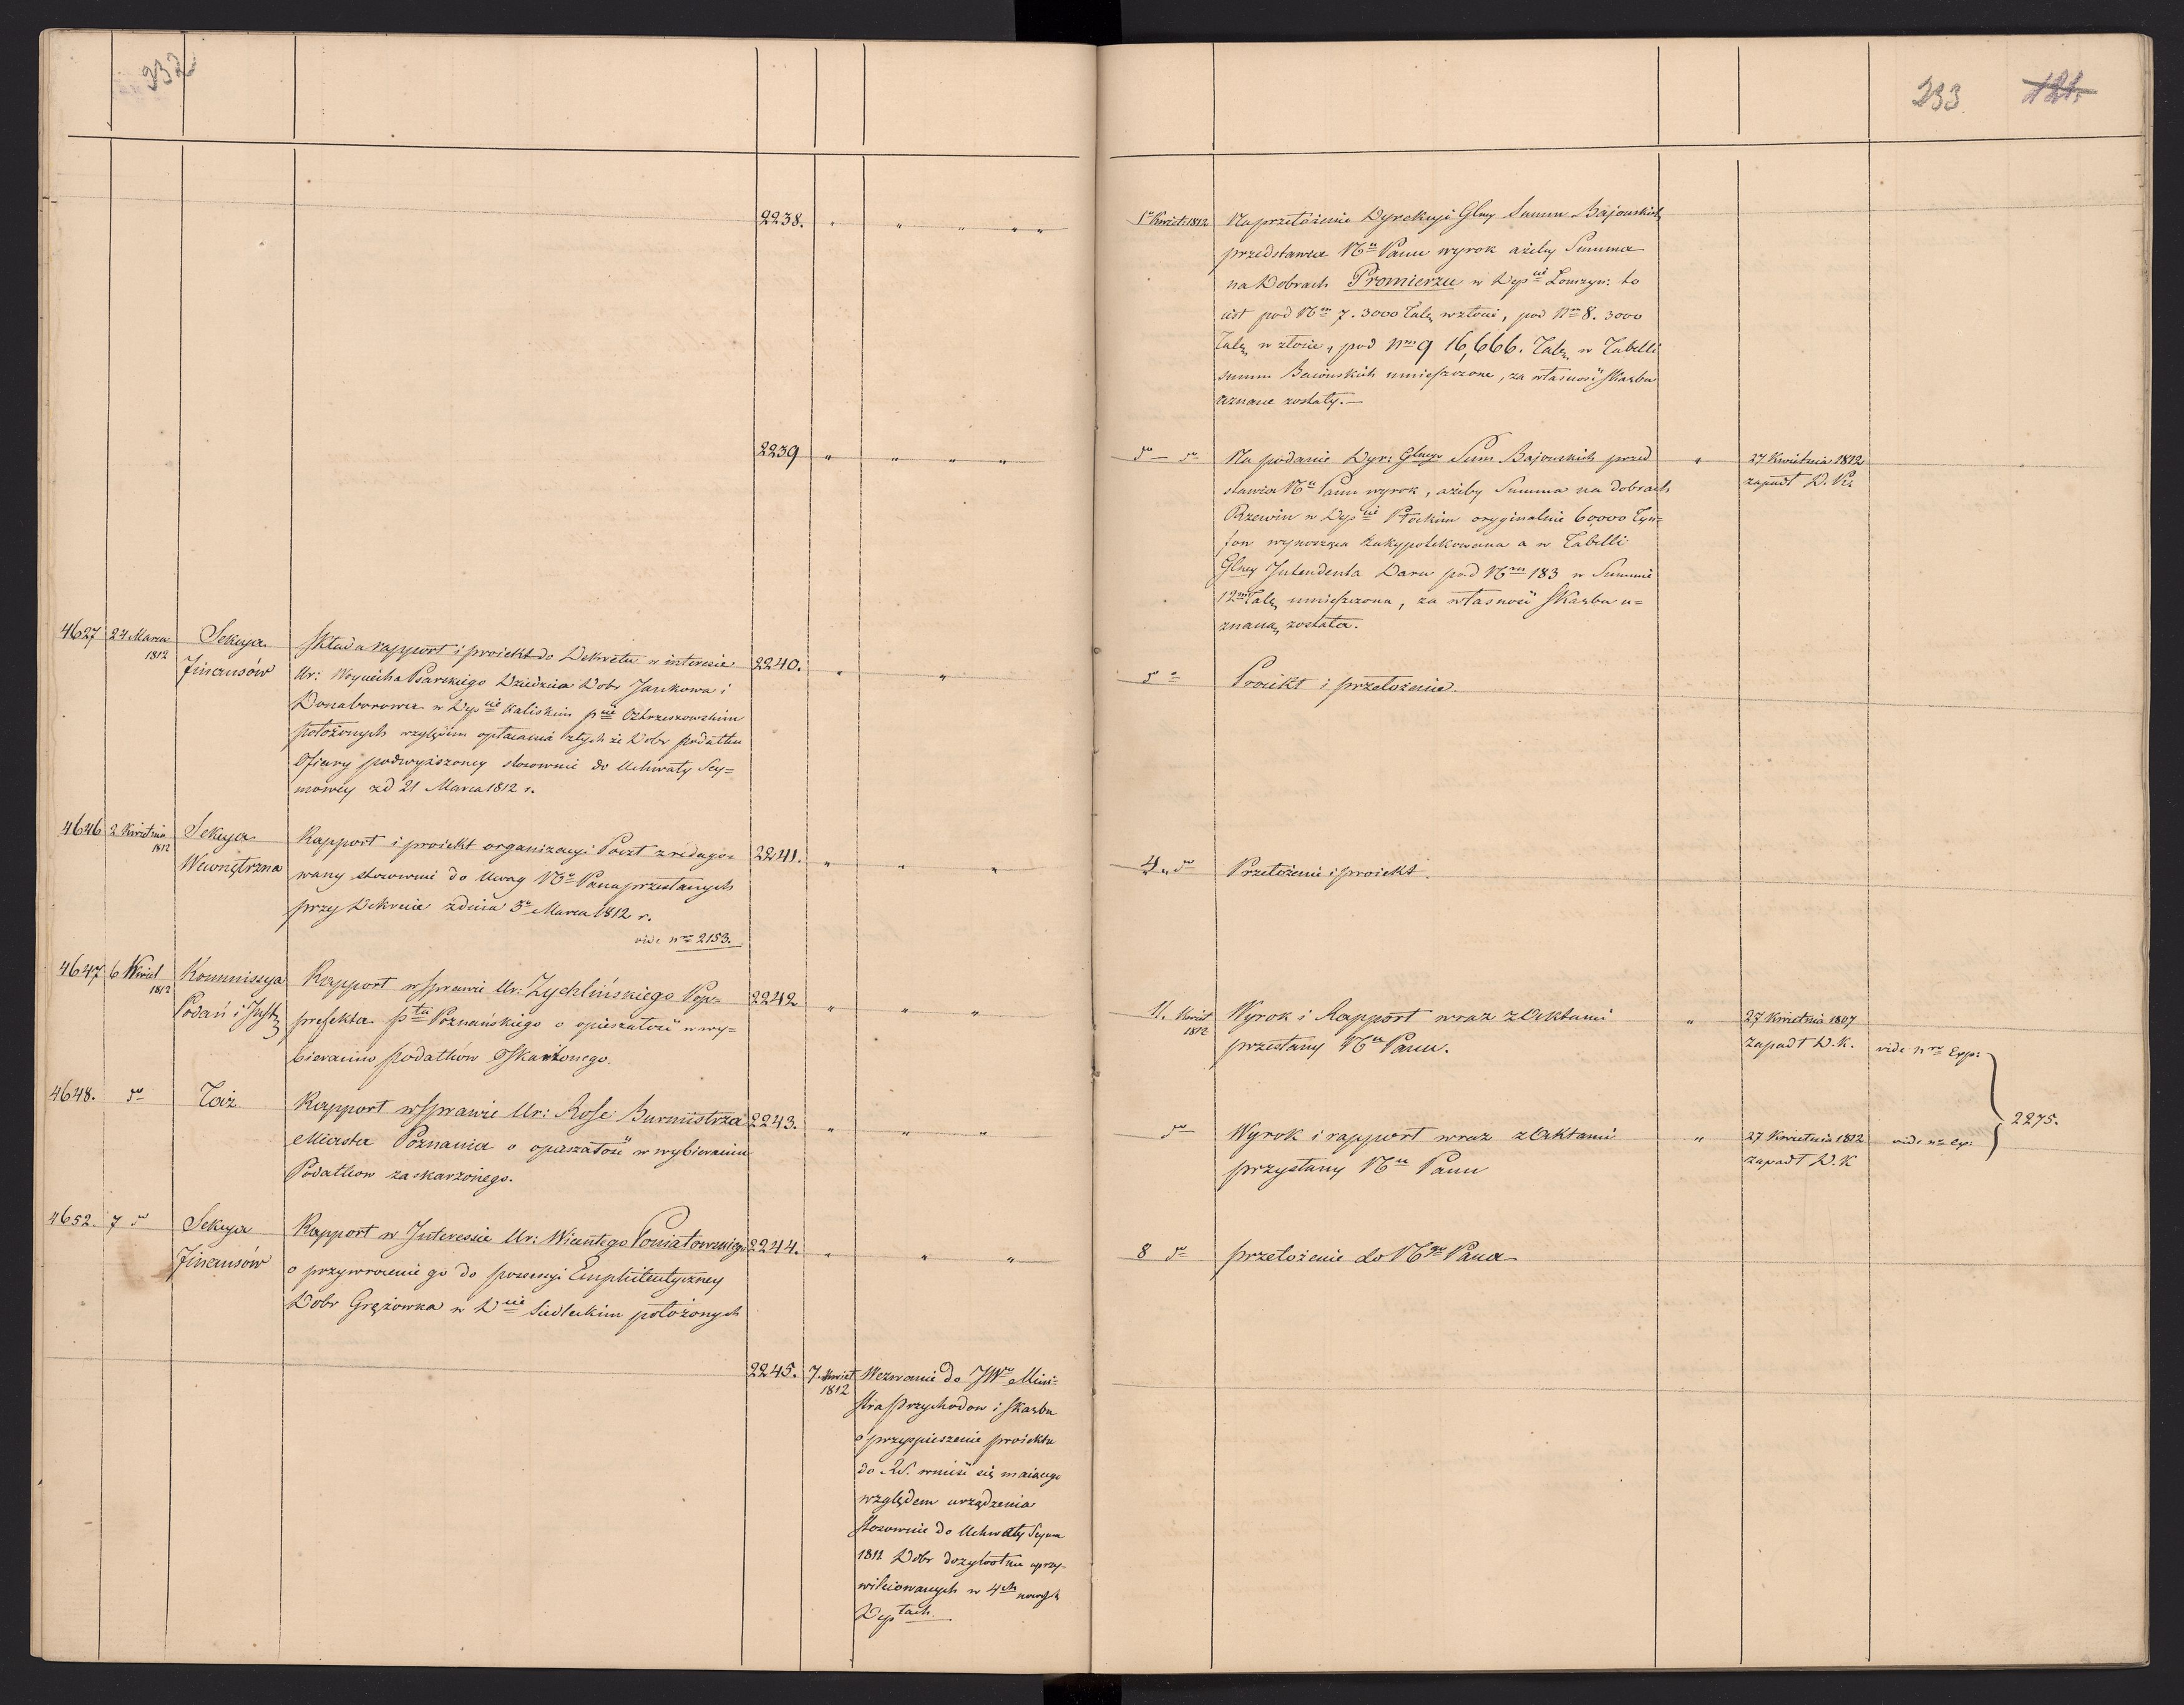 232
233 121.
2238. " " " " "
1o Kwiet: 1812 Na przełożenie Dyrekcyi Glney Summ Bajońskich
przedstawia Nu Panu wyrok ażeby Summa
na Dobrach Promierzu w Depcie Łomżyn: to
iest pod Nm 7. 3000 Tal. w złocie, pod Nm 8. 3000
Tal. w złocie, pod Nm 9 16,666. Tal. w Tabelli
summ Baiońskich umieszczone, za własność Skarbu
uznane zostały.—
2239 " " " "
do — do Na podanie Dyr: Glnego Sum Bajonskich przed
stawia Nu Panu wyrok, ażeby Summa na dobrach
Rzewin w Depcie Płockim oryginalnie 60000 Tyn=
fow wynosząca zahypotekowana a w Tabelli
Glney Intendenta Daru pod Nrm 183 w Summie
12m Tal. umieszczona, za własność Skarbu u=
znaną została.
" 27 Kwietnia 1812
zapadł D. Kr.
4627 24 Marca
1812
Sekcya
Finansów
Składa rapport i proiekt do Dekretu w interesie
Ur: Woyciecha Psarskiego Dziedzica Dobr Jankowa i
Donaborowa w Depcie Kaliskim pcie Ostrzeszowskim
położonych względem opłacania z tych że Dobr podatku
Ofiary podwyższoney stosownie do Uchwały Sey=
mowey zd 21 Marca 1812 r.
2240. " "
do Proiekt i przełożenie.
4646 2 Kwietnia
1812
Sekcya
Wewnętrzna
Rapport i proiekt organizacyi Poczt zredago=
wany stosownie do Uwag No Pana przesłanych
przy Dekrecie z dnia 3o Marca 1812 r.
vide nro 2153.
2241. " " "
4 " do Przełożenie i proiekt.
4647 6 Kwiet
1812
Kommissya
Podań i Just.
Rapport w sprawie Ur: Zychlińskiego Pop=
prefekta ptu Poznańskiego o opieszałość w wy=
bieraniu podatków Oskarżonego.
2242 " " "
11. Kwiet
1812
Wyrok i Rapport wraz z Aktami
przesłany Nu Panu.
" 27 Kwietnia 1807
zapadł D. K.
vide nro Exp:
4648. do Taż.
Rapport w sprawie Ur: Rose Burmistrza
Miasta Poznania o opaszałość w wybieraniu
Podatkow zaskarzonego.
2243. " " "
do Wyrok i rapport wraz z Aktami
przysłany Nu Panu
" 27 Kwietnia 1812
zapadł D. K
vide nro Exp:
2275.
4652. 7 do Sekcya
Finansów
Rapport w Interessie Ur: Wicentego Poniatowskiego
o przywrocenie go do possessyi Emphiteutyczney
Dobr Grężowka w Dcie Siedleckim położonych
2244. " " "
8 do przełożenie do Ngo Pana
2245. 7. Kwiet
1812
Wezwanie do JWo Mini=
stra Przychodow i Skarbu
o przyspieszenie proiektu
do RS. wnieść się maiącego
względem urządzenia
stosownie do Uchwały Seymu
1812 Dobr dozywotnie uprzy-
wileiowanych w 4ch nowych
Deptach.